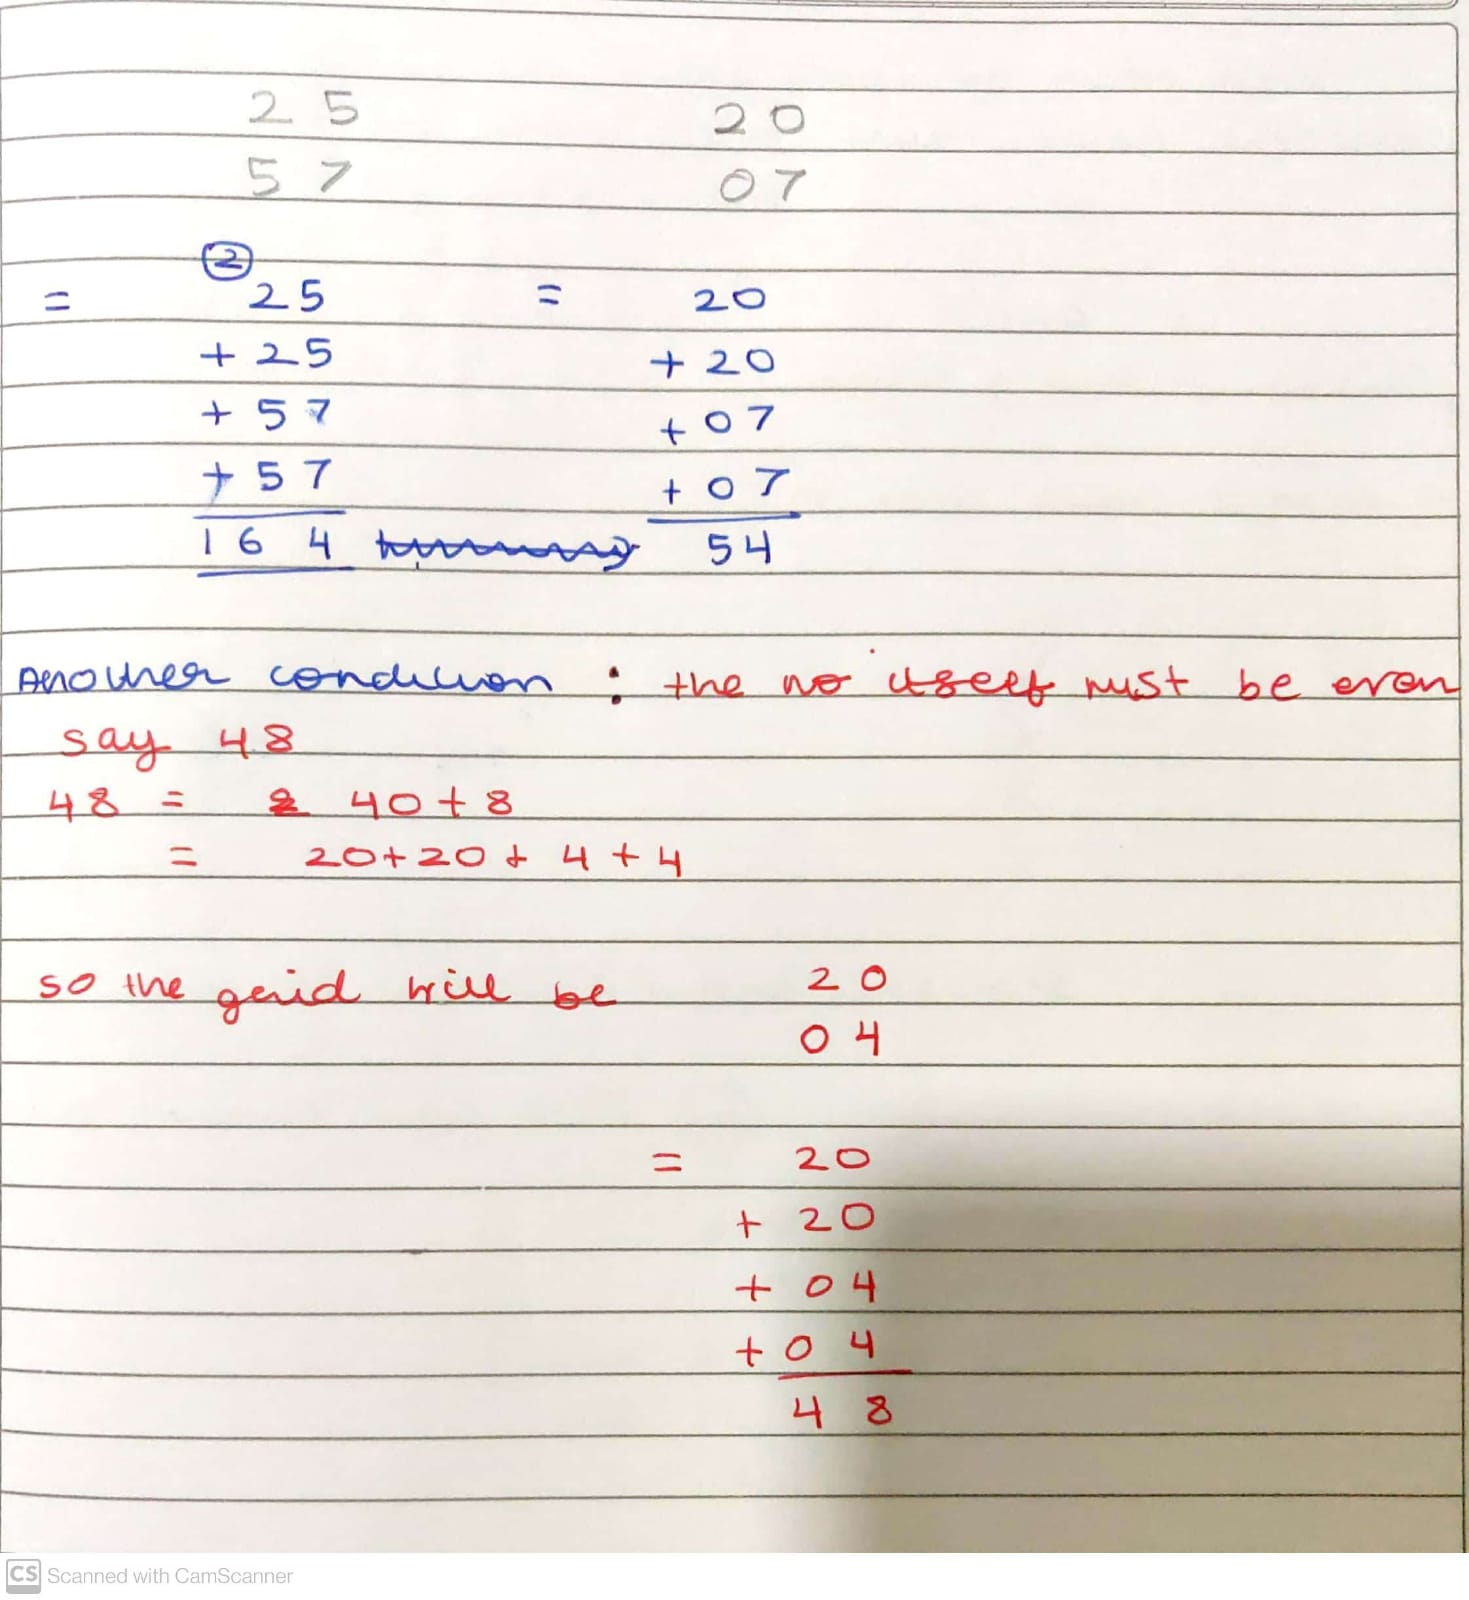 2 5 20
5 7 07
2
= 25 = 20
+ 25 + 20
+ 57 + 07
+ 57 + 07
164 54
Another condition : the no itself must be even
say 48
48 = 40 + 8
= 20 + 20 + 4 + 4
so the grid will be 20
04
= 20
+ 20
+ 04
+ 04
48
CS Scanned with CamScanner